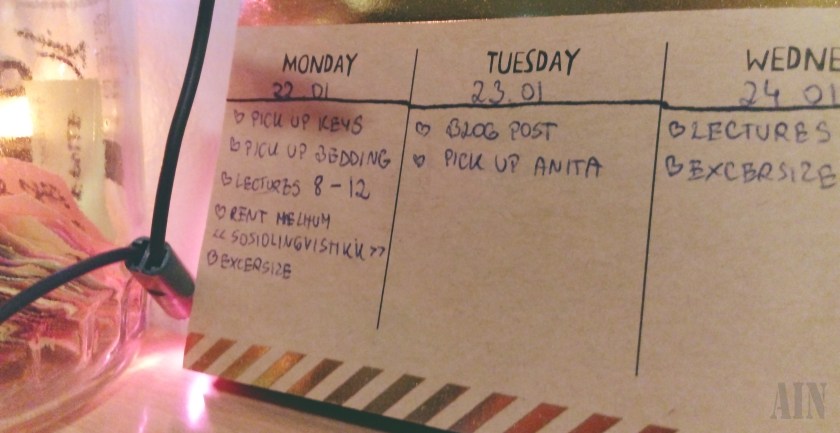 MONDAY
22 01
PICK UP KEYS
PICK UP BEDDING
LECTURES 8-12
RENT MELHUM
<< SOSIOLINGVISTIKK >>
EXCERSIZE
TUESDAY
23.01
BLOG POST
PICK UP ANITA
WEDNE
24 01
LECTURES
EXCERSIZE
AIN